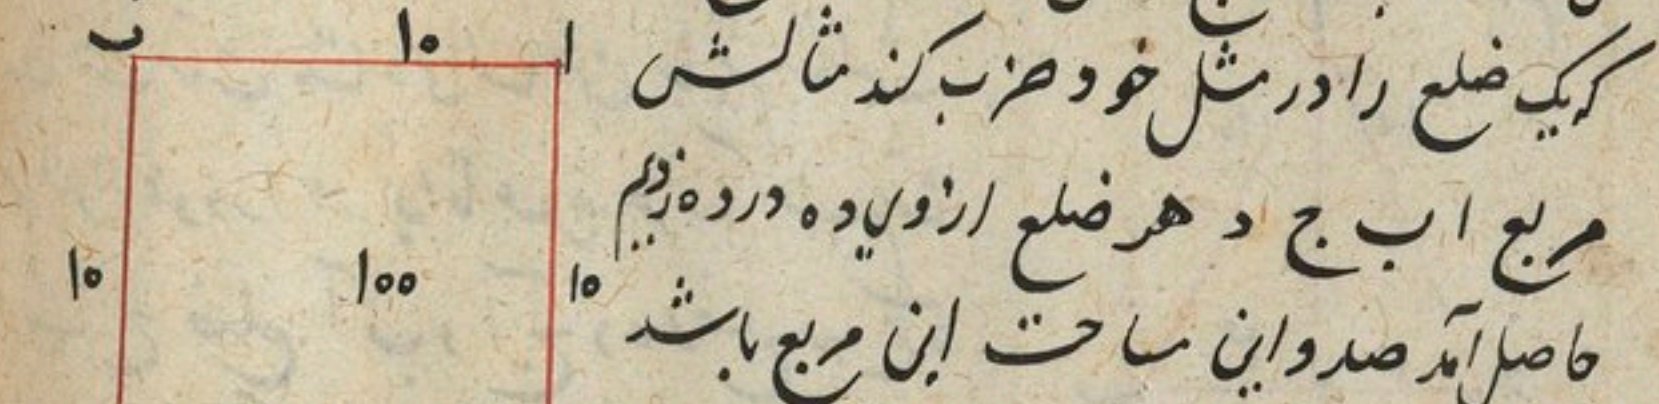 که یک ضلع را در مثل خود ضرب کند مثالش
مربع ا ب ج د هر ضلع ازوی ده در ده زدیم
حاصل آمد صد و این مساحت این مربع باشد
ا ۱۰ ب
۱۰ ۱۰۰ ۱۰